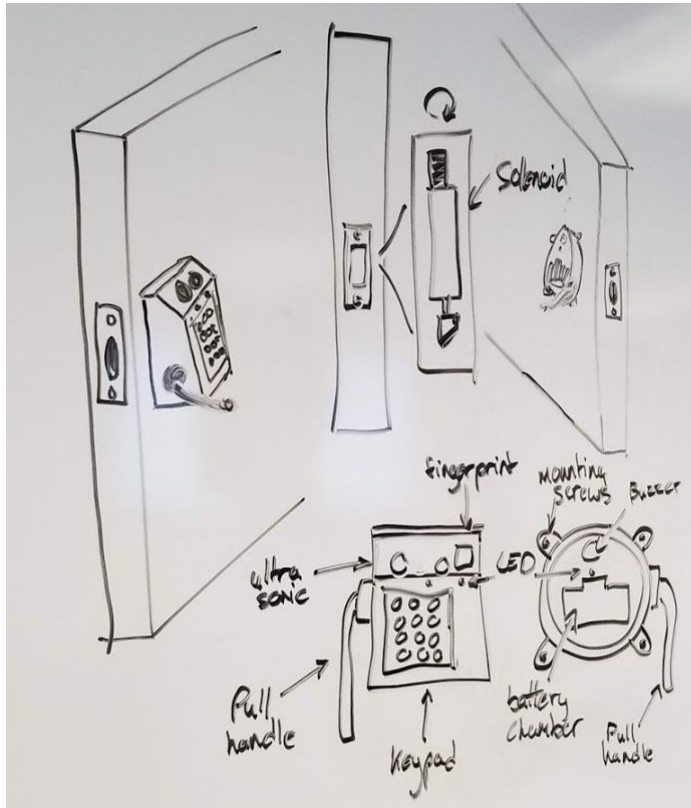 Solenoid
fingerprint
mounting
screws
Buzzer
ultra
sonic
LED
Pull
handle
keypad
battery
chamber
Pull
handle